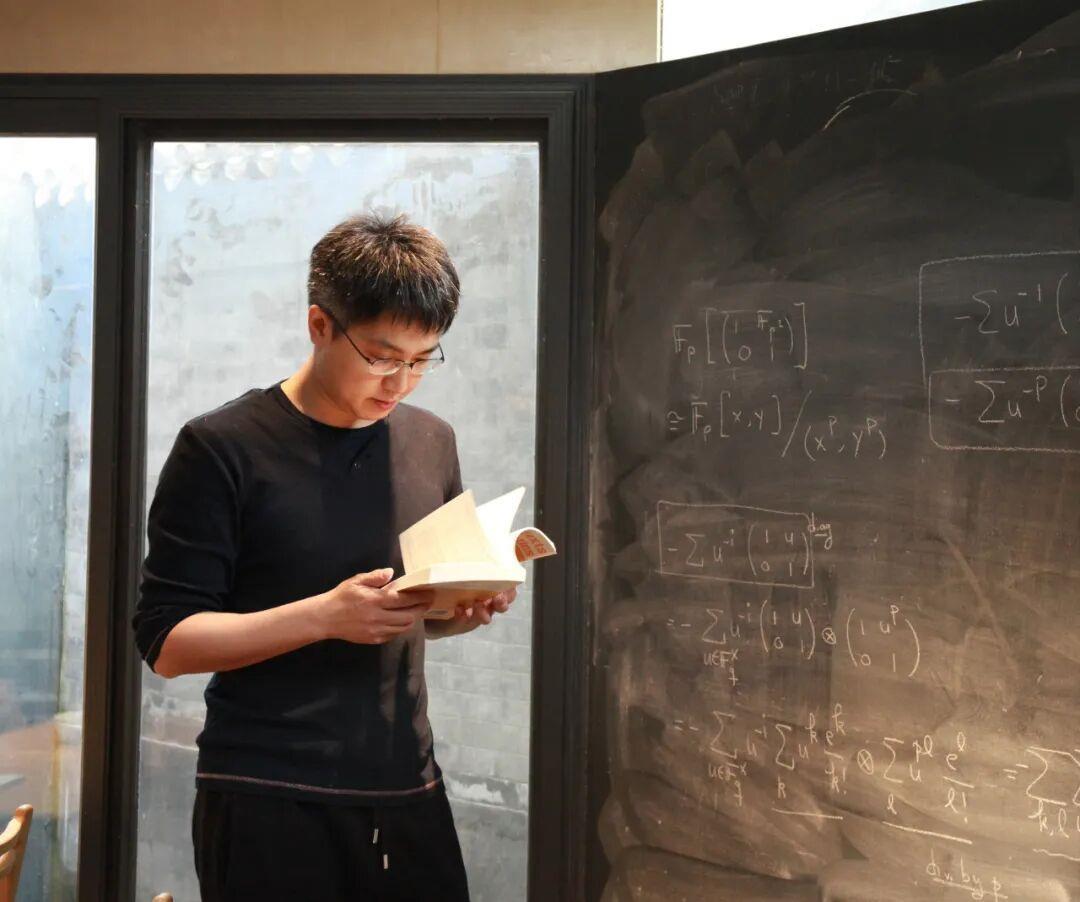 𝔽_p [ ( 1 𝔽_{p^2} ; 0 1 ) ]
≅ 𝔽_p [x, y] / (x^p, y^p)
- ∑ u^{-1} (
- ∑ u^{-p} (
- ∑ u^{-i} ( 1 u ; 0 1 ) diag
= - ∑_{u∈𝔽_q^×} u^{-i} ( 1 u ; 0 1 ) ⊗ ( 1 u^p ; 0 1 )
= - ∑_{u∈𝔽_q^×} u^{-i} ∑_k u^k e^k / k! ⊗ ∑_l u^{pl} e^l / l! = ∑_{k,l
div. by p